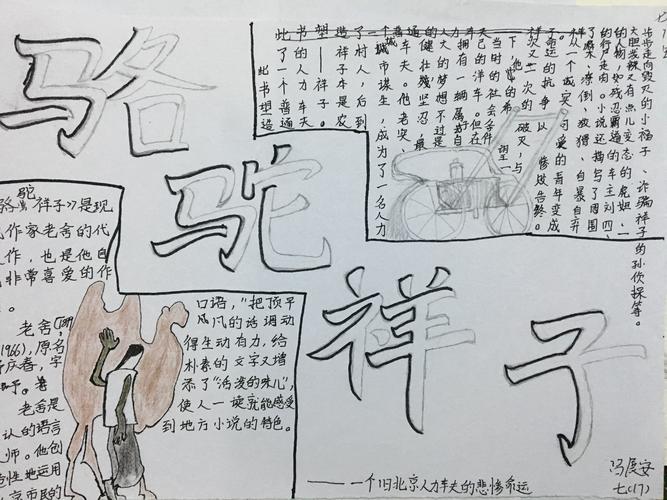 骆驼祥子
——一个旧北京人力车夫的悲惨命运
冯展安
七(17)
此书塑造
了一个普通
的人力车夫
——祥子。
祥子本是农
村人,后到
城市谋生,成为了一名人力
车夫。他老实、
健壮、坚忍,最
大的梦想不过是
拥有一辆属于自
己的洋车。但在
当时的社会条件
下,他的希望一
次又一次的破灭,与
子命运的抗争,以惨败告终。祥
从一个诚实、可爱的青年变成
了麻木、潦倒、狡猾、自暴自弃
的行尸走肉。小说还描写了周围
的人物,如残忍霸道的车主刘四、
大胆泼辣又有点儿变态的虎妞、一
步步走向毁灭的小福子、诈骗祥子的孙侦探等。
骆驼祥子》是现
作家老舍的代
作,也是他自
非常喜爱的作
。
老舍(
1966),原名
庆春,字
舍予。老
老舍是
认的语言
师。他创
性地运用
京市民的
口语,"把顶平
凡的话调动
得生动有力,给
朴素的文字又增
添了"活泼的味儿",
使人一读就能感受
到地方小说的特色。